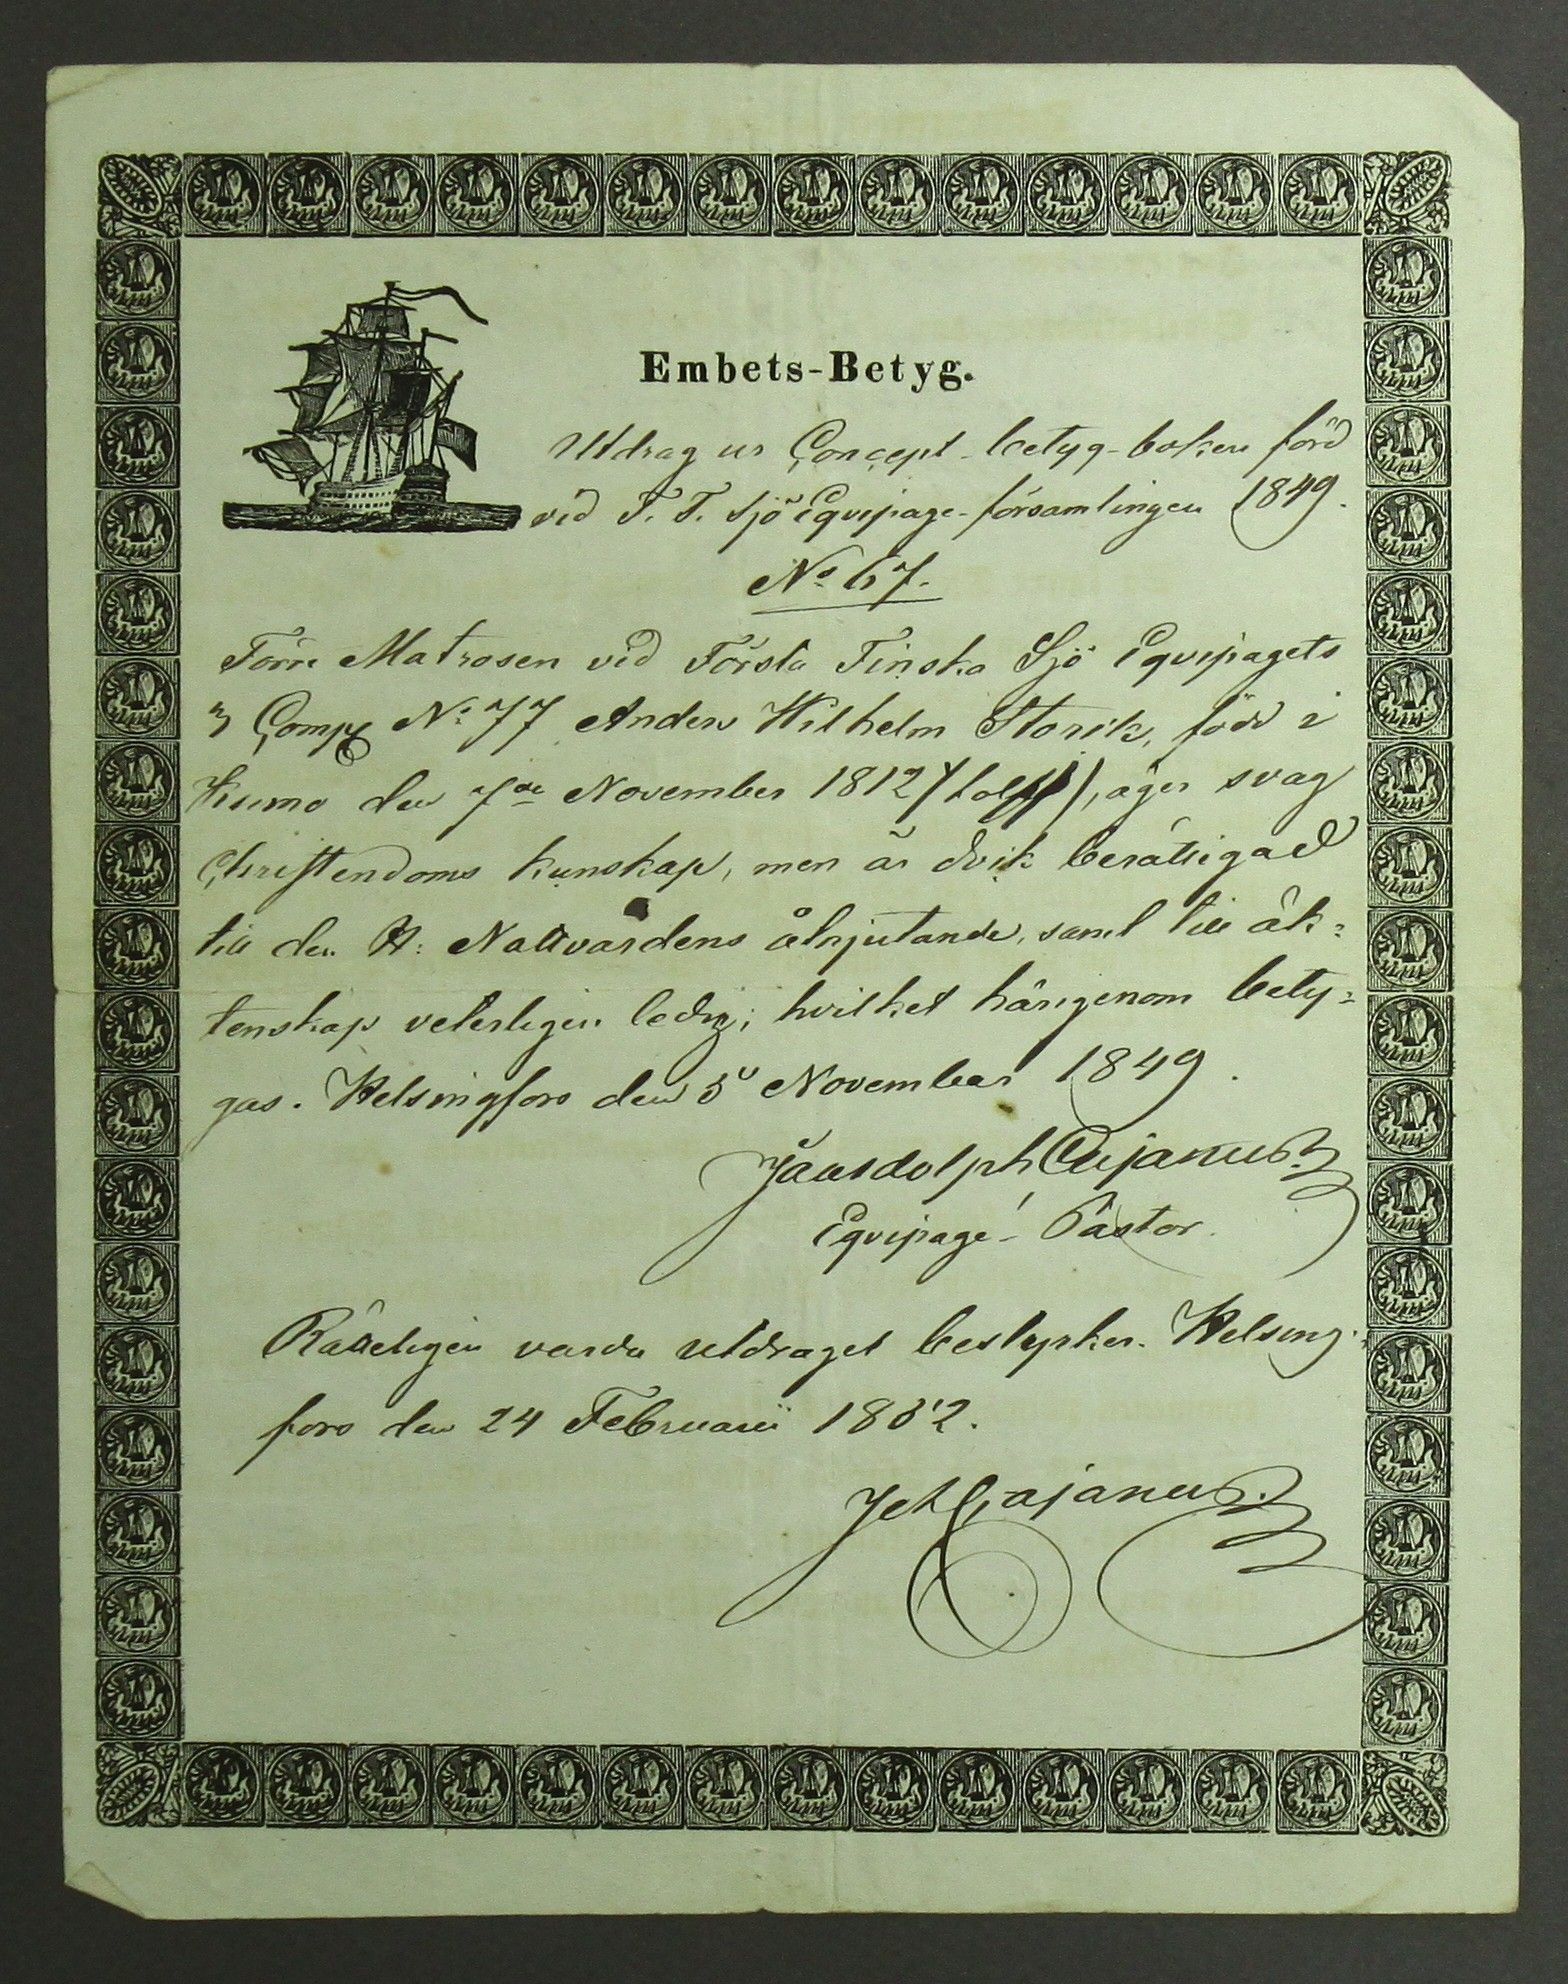 Embets-Betyg.
Utdrag ur Concept-betyg-boken förd
vid F. F. Sjö Eqvipage-församlingen 1849.
No 67.
Förre Matrosen vid Första Finska Sjö Eqvipagets
3 Comp No 77 Anders Wilhelm Storik, född i
Kumo den 7de November 1812 (tolf), äger svag
Christendoms kunskap, men är dock berättigad
till den H: Nattvardens åtnjutande, samt till äk=
tenskap veterligen ledig; hvilket härigenom bety=
gas. Helsingfors den 5 November 1849.
Cajanus
Eqvipage-Pastor.
Rätteligen vara utdraget bestyrker. Helsing=
fors den 24 Februarii 1852.
Cajanus.